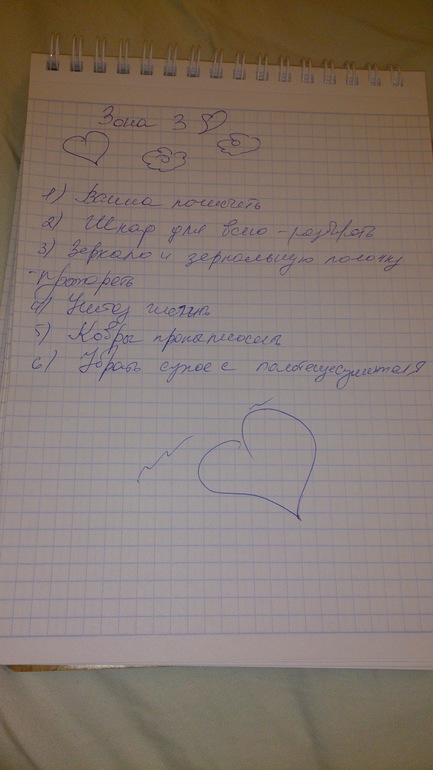 Зона 3
1) Ванна почистить
2) Шкаф для всего - разобрать
3) Зеркало и зеркальную полочку
протереть
4) Унитаз
5) Ковры пропылесосить
6) Убрать сухое с полотенцесушителя